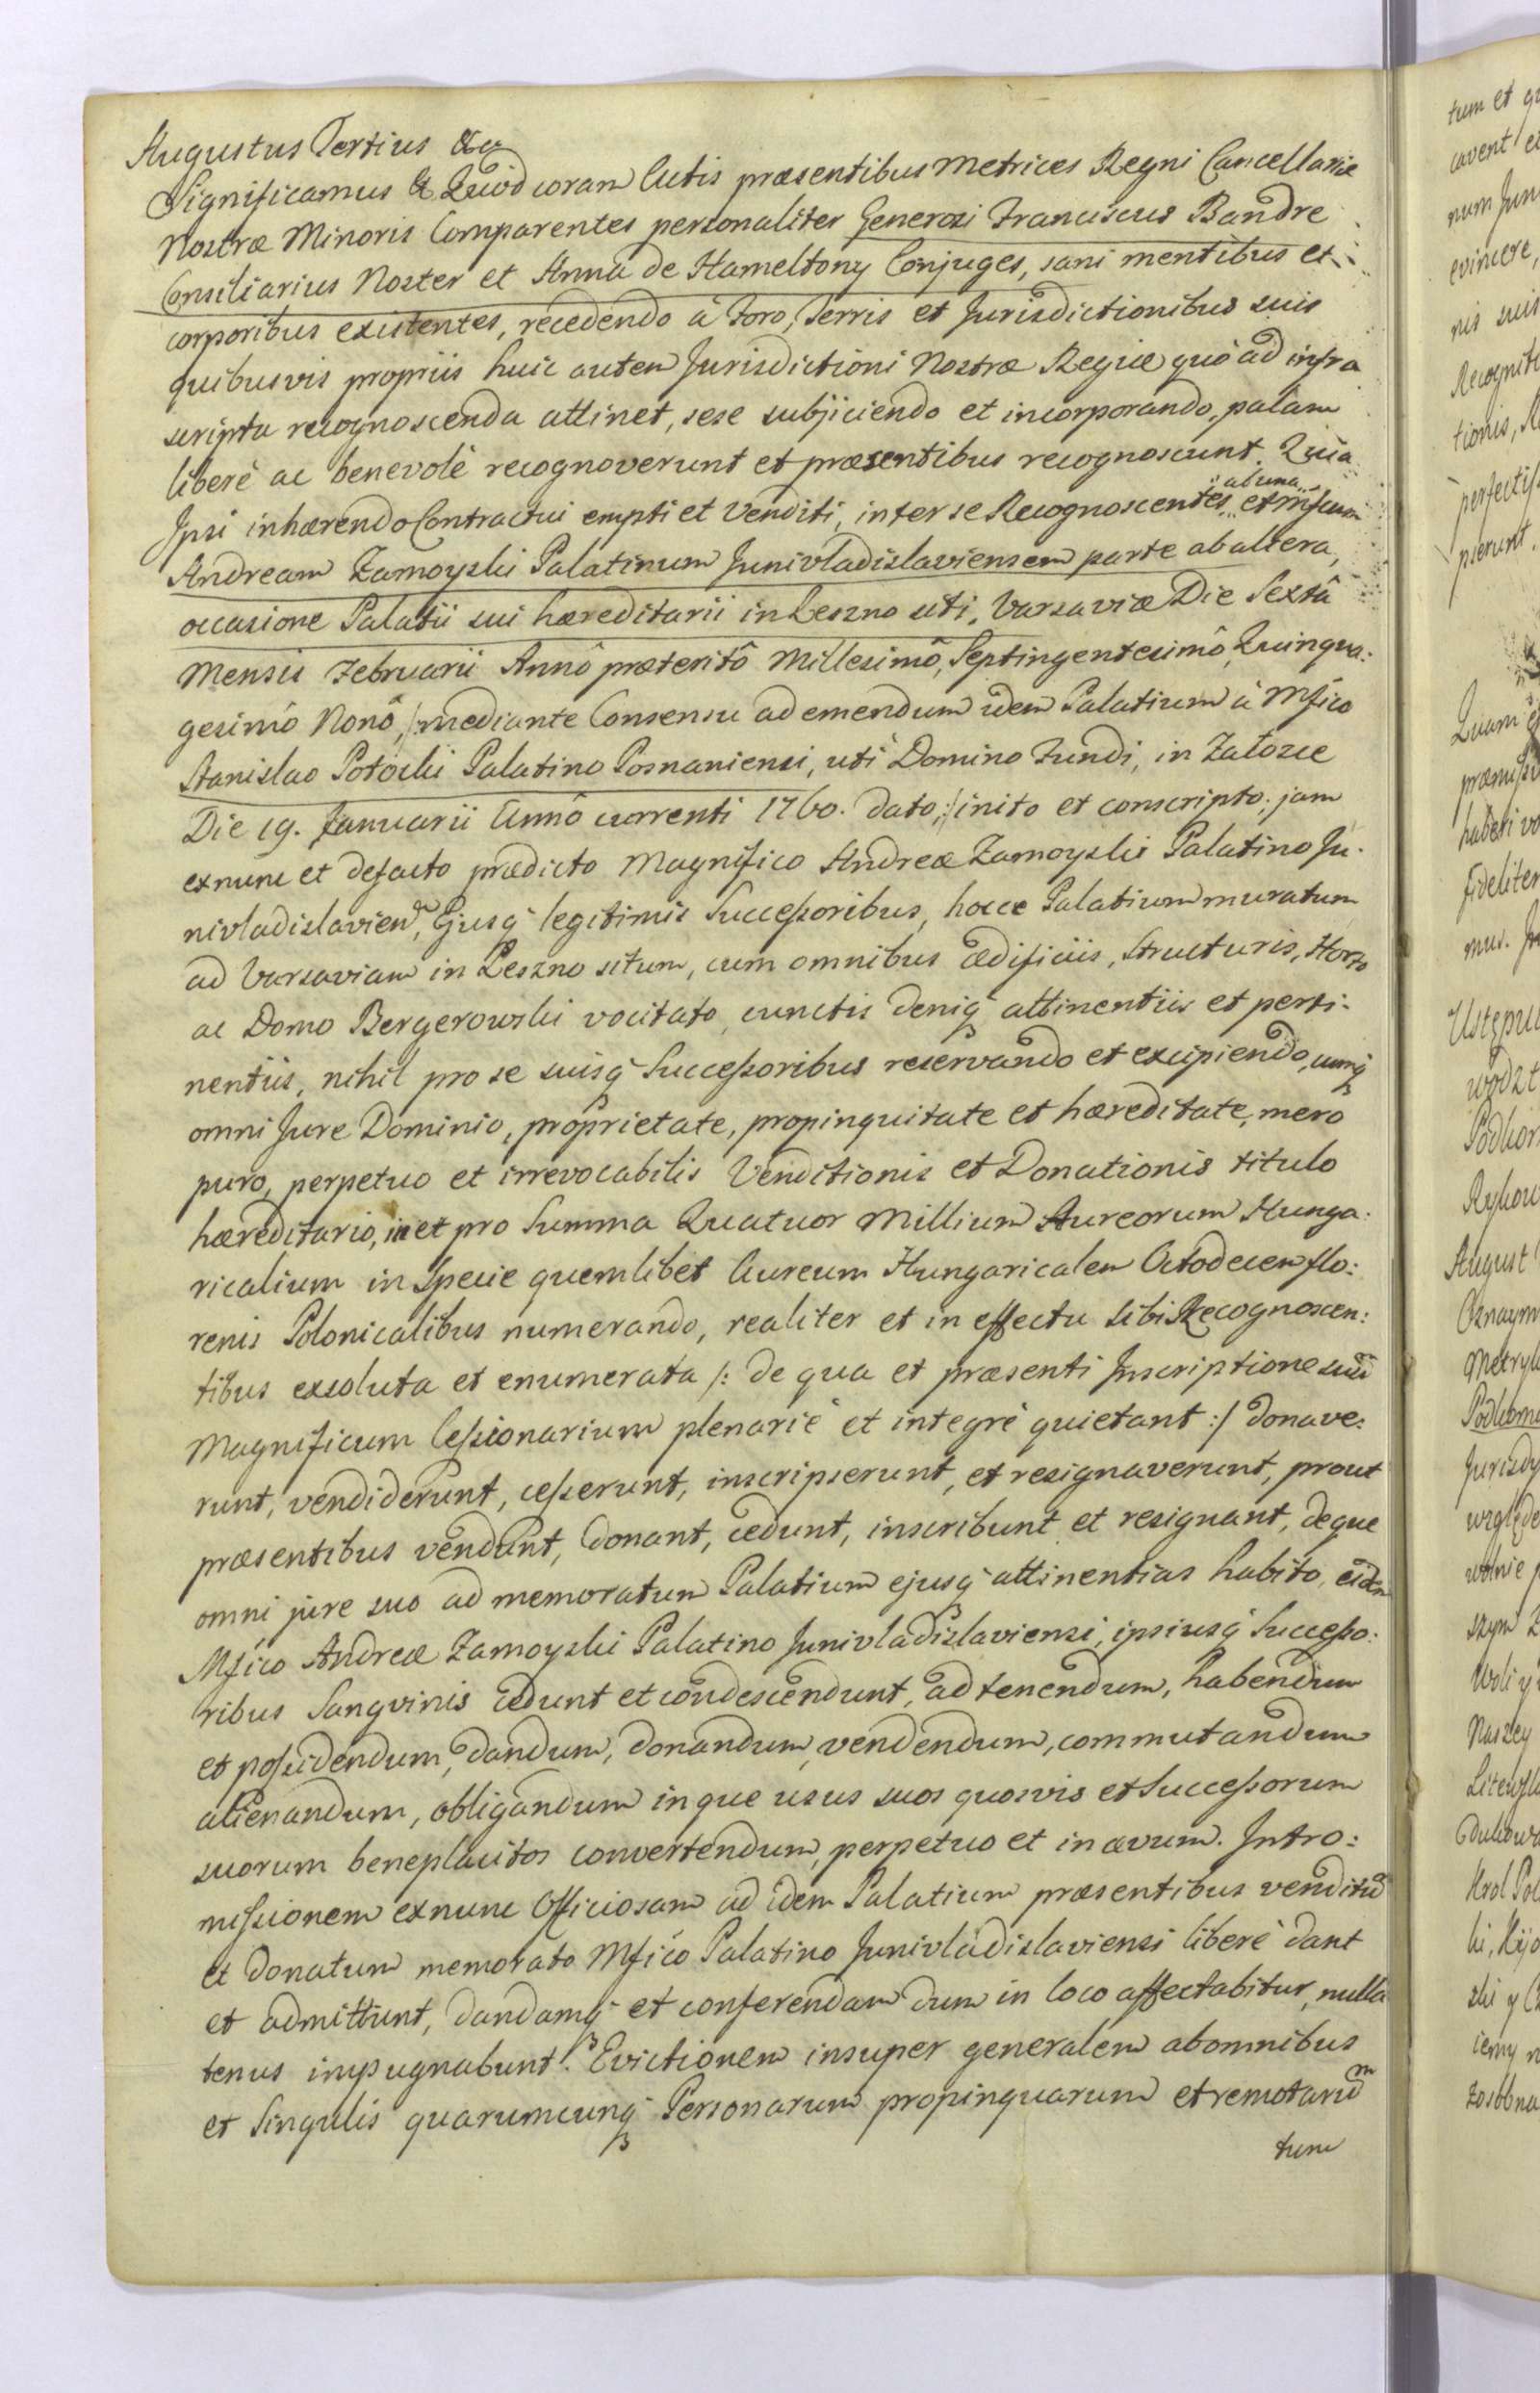 Augustus Tertius &ca
Significamus &c Quod coram Actis præsentibus Metrices Regni Cancellariæ
Nostræ Minoris Comparentes personaliter Generosi Franciscus Bandre
Consiliarius Noster et Anna de Hameltony Conjuges, sani mentibus et
corporibus existentes, recedendo à Foro, Terris et Jurisdictionibus suis
quibusvis propriis huic autem Jurisdictioni Nostræ Regiæ quò ad infra
scripta recognoscenda attinet, sese subjiciendo et incorporando, palam
liberè ac benevolè recognoverunt et præsentibus recognoscunt. Quia
ab una
Ipsi inhærendo Contractui empti et venditi, inter se Recognoscentes et Mficum
Andream Zamoyski Palatinum Junivladislaviensem parte ab altera,
occasione Palatii sui hæreditarii in Leszno siti, Varsaviæ Die Sextâ
Mensis Februarii Annô præteritô Millesimô, Septingentesimô, Quinqua:
gesimô Nonô, /:mediante Consensu ad emendum idem Palatium à Mfico
Stanislao Potocki Palatino Posnaniensi, uti Domino Fundi, in Załozce
Die 19. Januarii Annô currenti 1760. dato,:/ inito et conscripto; jam
exnunc et defacto prædicto Magnifico Andreæ Zamoyski Palatino Ju:
nivladislavien, Ejusq legitimis Successoribus, hocce Palatium muratum
ad Varsaviam in Leszno situm, cum omnibus ædificiis, Structuris, Horto
ac Domo Bergerowski vocitato, cunctis deniq attinentiis et perti:
nentiis, nihil pro se suisq Successoribus reservando et excipiendo, cumq
omni Jure Dominio, proprietate, propinquitate et hæreditate, mero
puro, perpetuo et irrevocabilis Venditionis et Donationis titulo
hæreditario, in et pro Summa Quatuor Millium Aureorum Hunga:
ricalium in Specie quemlibet Aureum Hungaricalem Octodecem flo:
renis Polonicalibus numerando, realiter et in effectu sibi Recognoscen:
tibus exsoluta et enumerata /: de qua et præsenti Inscriptione suâ
Magnificum Cessionarium plenariè et integrè quietant :/ donave:
runt, vendiderunt, cesserunt, inscripserunt, et resignaverunt, prout
præsentibus vendunt, donant, cedunt, inscribunt et resignant, deque
omni jure suo ad memoratum Palatium ejusq attinentias habito, eidem
Mfico Andreæ Zamoyski Palatino Junivladislaviensi, ipsiusq Successo:
ribus Sangvinis cedunt et condescendunt, ad tenendum, habendum
et possidendum, dandum, donandum, vendendum, commutandum
alienandum, obligandum inque usus suos quosvis et Successorum
suorum beneplacitos convertendum, perpetuo et in ævum. Intro:
missionem exnunc Officiosam ad idem Palatium præsentibus venditum
et donatum memorato Mfico Palatino Junivladislaviensi liberè dant
et admittunt, dandamq et conferendam dum in loco affectabitur, nulla
tenus impugnabunt. Evictionem insuper generalem ab omnibus
et Singulis quarumcunq Personarum propinquarum et remotarum
tum